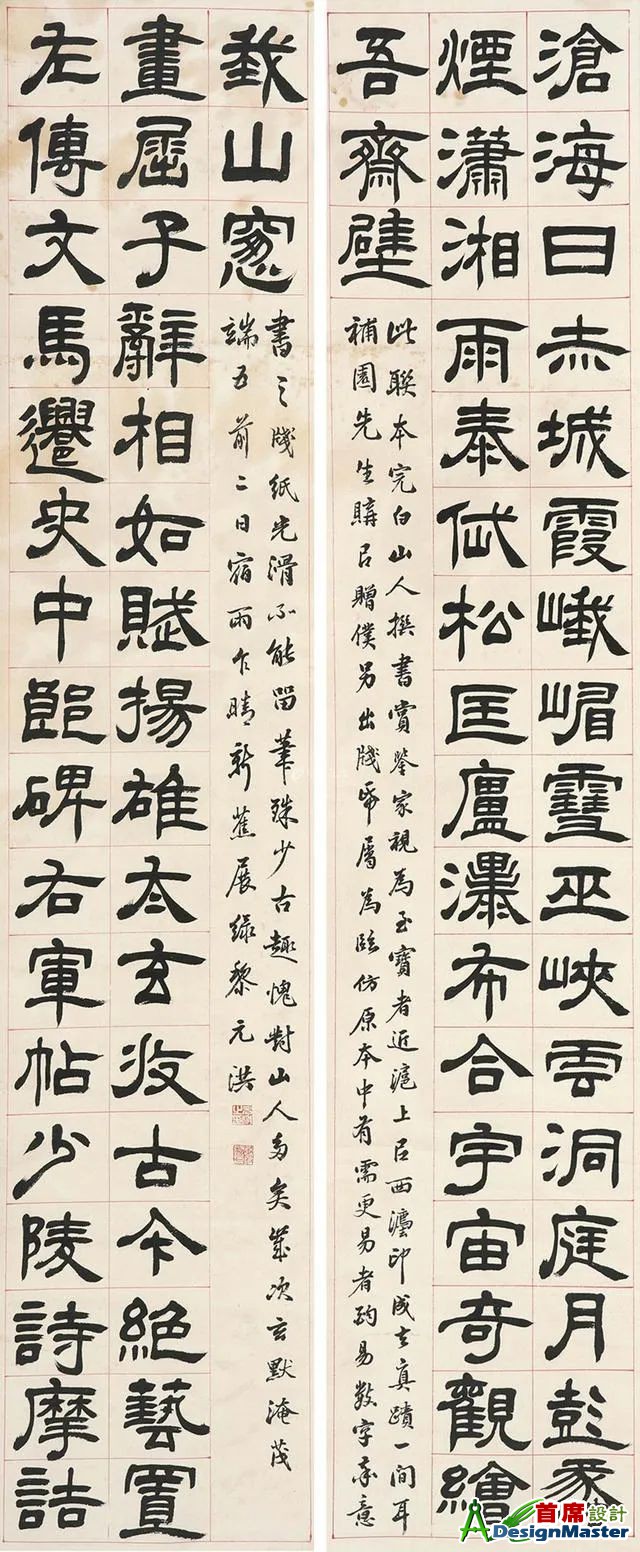 滄海日赤城霞峨嵋雪巫峽雲洞庭月彭蠡
煙瀟湘雨泰岱松匡廬瀑布合宇宙奇觀繪
吾齋壁
此聯本完白山人撰書賞鑒家視為至寶者近滬上㠯西灋印成去真蹟一間耳
補園先生購㠯贈僕另出牋帋屬為臨仿原本中有需更易者酌易數字率意
左傳文馬遷史中郎碑右軍帖少陵詩摩詰
畫屈子辭相如賦揚雄太玄收古今絕藝置
我山窗
書之牋紙光滑不能留筆殊少古趣愧對山人多矣歲次玄默淹茂
端五前二日宿雨乍晴新蕉展綠黎元洪
首席設計
DesignMaster